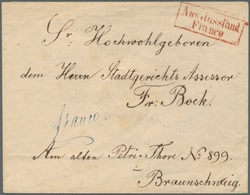 Aus Russland
Franco
Sr. Hochwohlgeboren
dem Herrn Stadtgerichts Assessor
Fr. Bock.
franco
Am alten Petri-Thore No 899.
Braunschweig